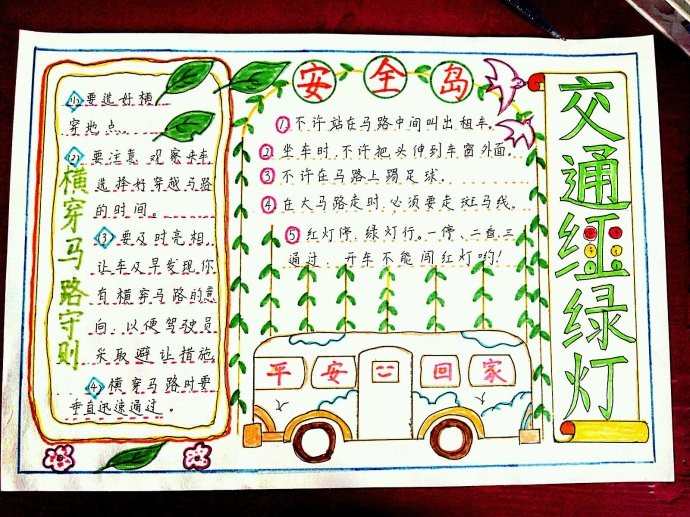 横穿马路守则
(1)要选好横
穿地点。
(2)要注意观察来车,
选择好穿越马路
的时间。
(3)要及时亮相,
让车及早发现你
有横穿马路的意
向,以便驾驶员
采取避让措施。
(4)横穿马路时要
垂直迅速通过。
安全岛
①不许站在马路中间叫出租车。
②坐车时,不许把头伸到车窗外面。
③不许在马路上踢足球。
④在大马路走时,必须要走斑马线。
⑤红灯停,绿灯行。一停、二查、三
通过,开车不能闯红灯哟!
平安回家
交通红绿灯